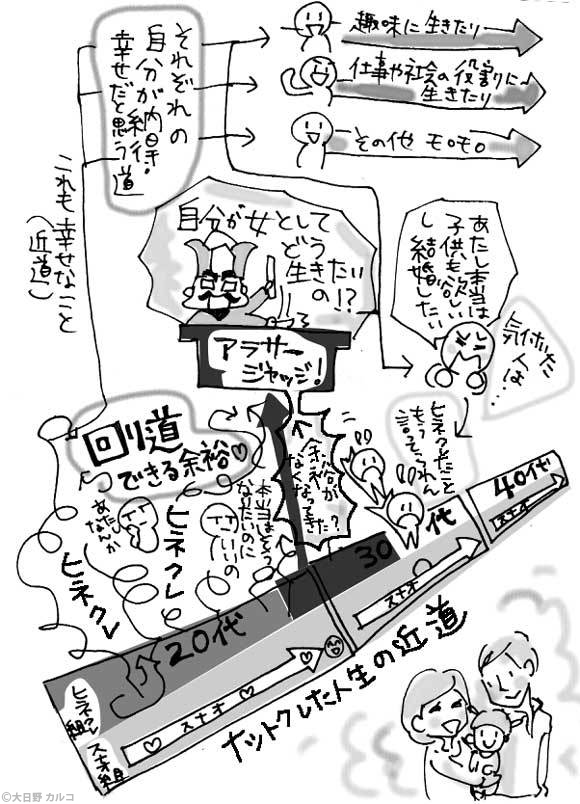 それぞれの
自分が納得・
幸せだと思う道
趣味に生きたり
仕事や社会の役割に
生きたり
その他 モロモロ
これも幸せなこと
(近道)
自分が女として
どう生き
たいの!?
アラサー
ジャッジ!
あたし本当は
子供も欲しい
し結婚したい
気付いた
人は…
ヒネクレたこと
もう言ってらんない
回り道
できる余裕♡
余裕が
なくなってきた?
本当はそう
なだけなのに
いいの
あたし
なんか
ヒネクレ
ヒネクレ
20代
30代
40代
ヒネクレ組
スナオ組
スナオ
スナオ
スナオ
ナットクした人生の近道
©大日野 カルコ